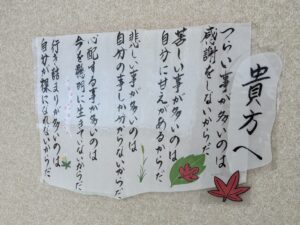 貴方へ
つらい事が多いのは
感謝をしないからだ
苦しい事が多いのは
自分に甘えがあるからだ
悲しい事が多いのは
自分の事しか分からないからだ
心配する事が多いのは
今を懸命に生きていないからだ
行き詰りが多いのは
自分が裸になれないからだ